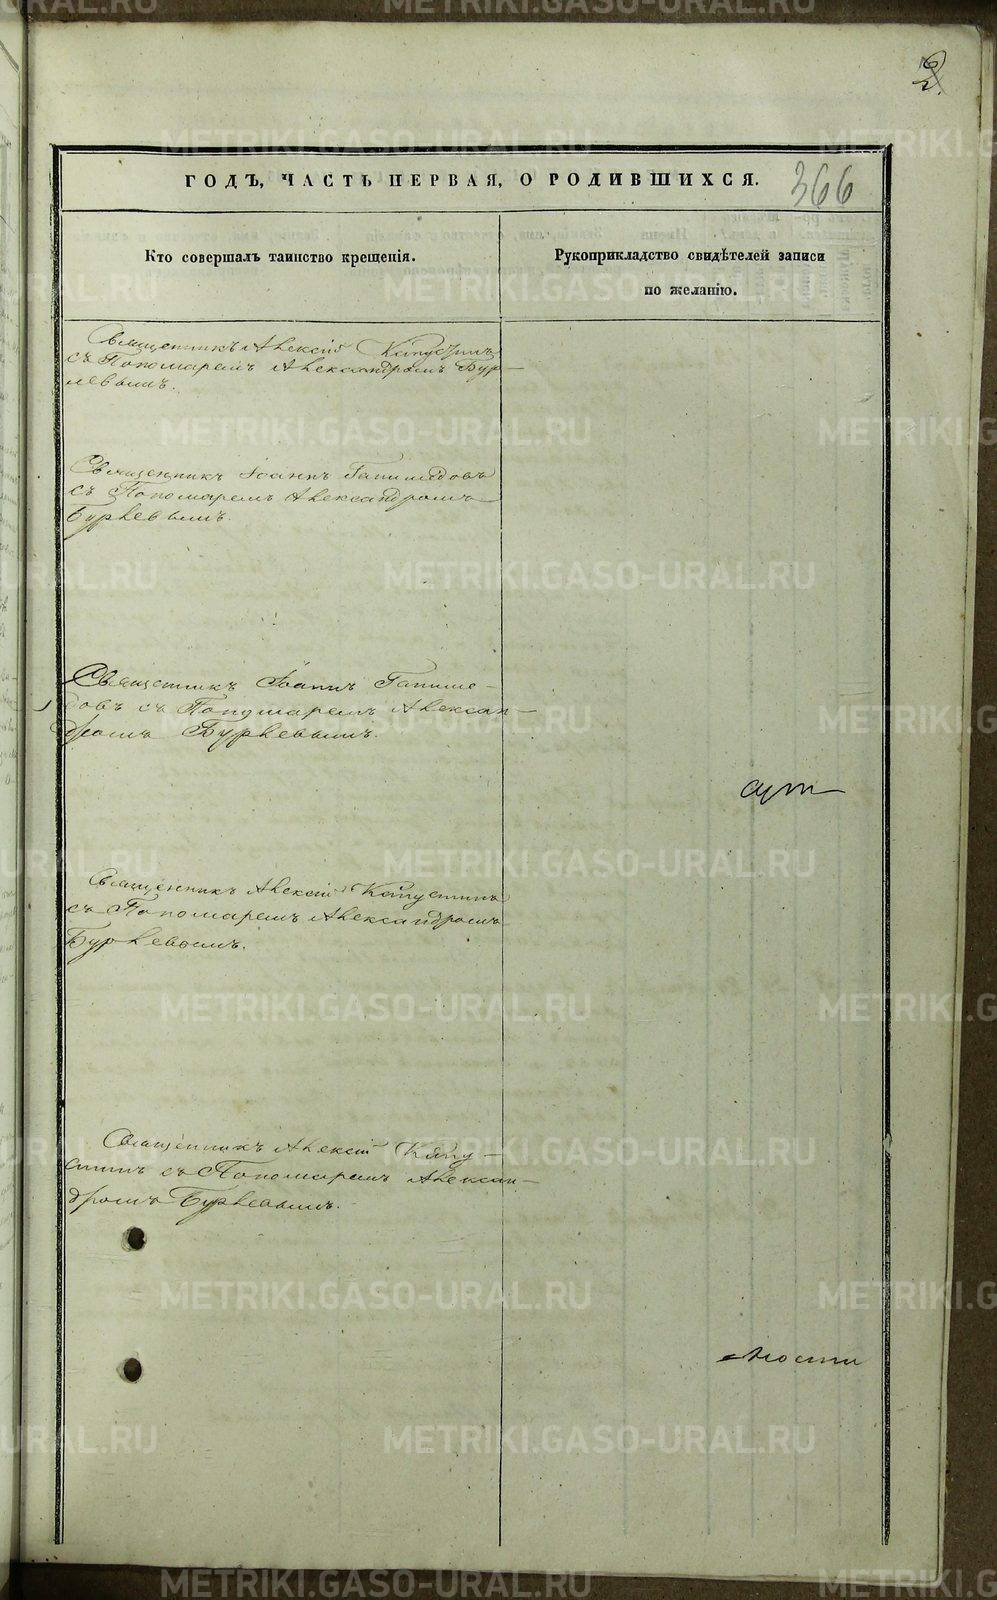 2.
ГОДЪ, ЧАСТЬ ПЕРВАЯ, О РОДИВШИХСЯ.
366
Кто совершалъ таинство крещенія.
Рукоприкладство свидѣтелей записи
по желанію.
Священникъ Алексій Капустинъ
съ Пономаремъ Александромъ Бур-
левымъ.
Священникъ Іоаннъ Ганимедовъ
съ Пономаремъ Александромъ
Бурлевымъ.
Священникъ Іоаннъ Ганиме-
довъ съ Пономаремъ Алексан-
дромъ Бурлевымъ.
Священникъ Алексій Капустинъ
съ Пономаремъ Александромъ
Бурлевымъ.
Священникъ Алексій Капу-
стинъ съ Пономаремъ Алексан-
дромъ Бурлевымъ.
METRIKI.GASO-URAL.RU